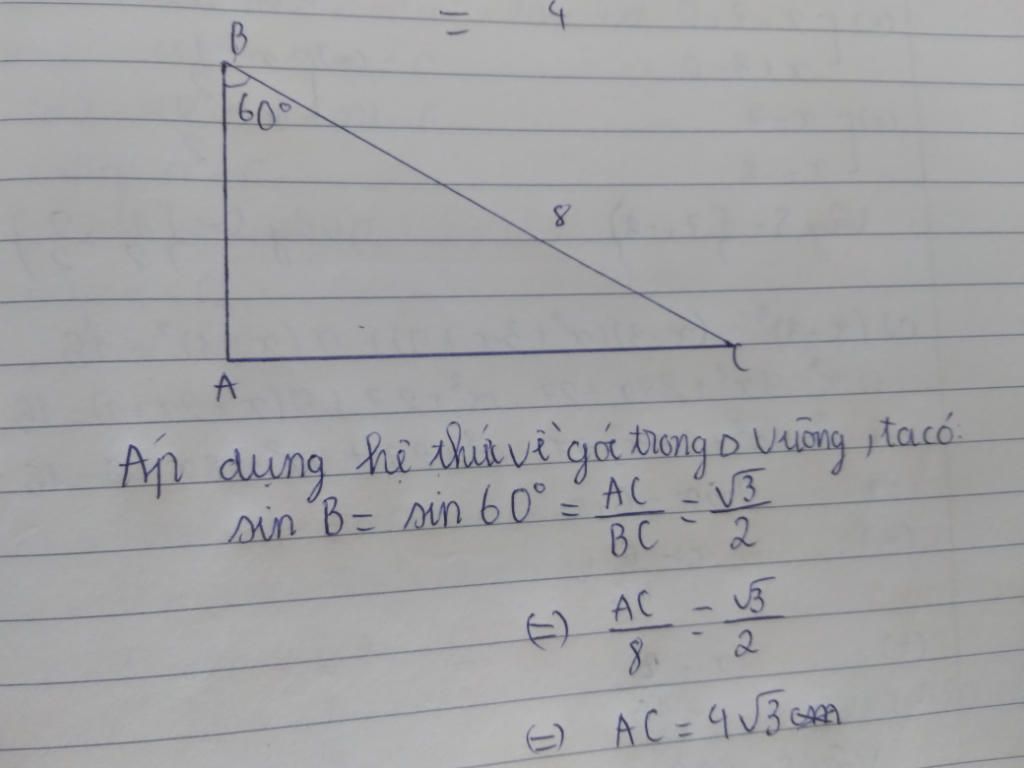 = 4
B
60°
8
A
C
Áp dụng hệ thức về góc trong Δ vuông, ta có:
sin B = sin 60° = AC/BC = √3/2
(=) AC/8 = √3/2
(=) AC = 4√3